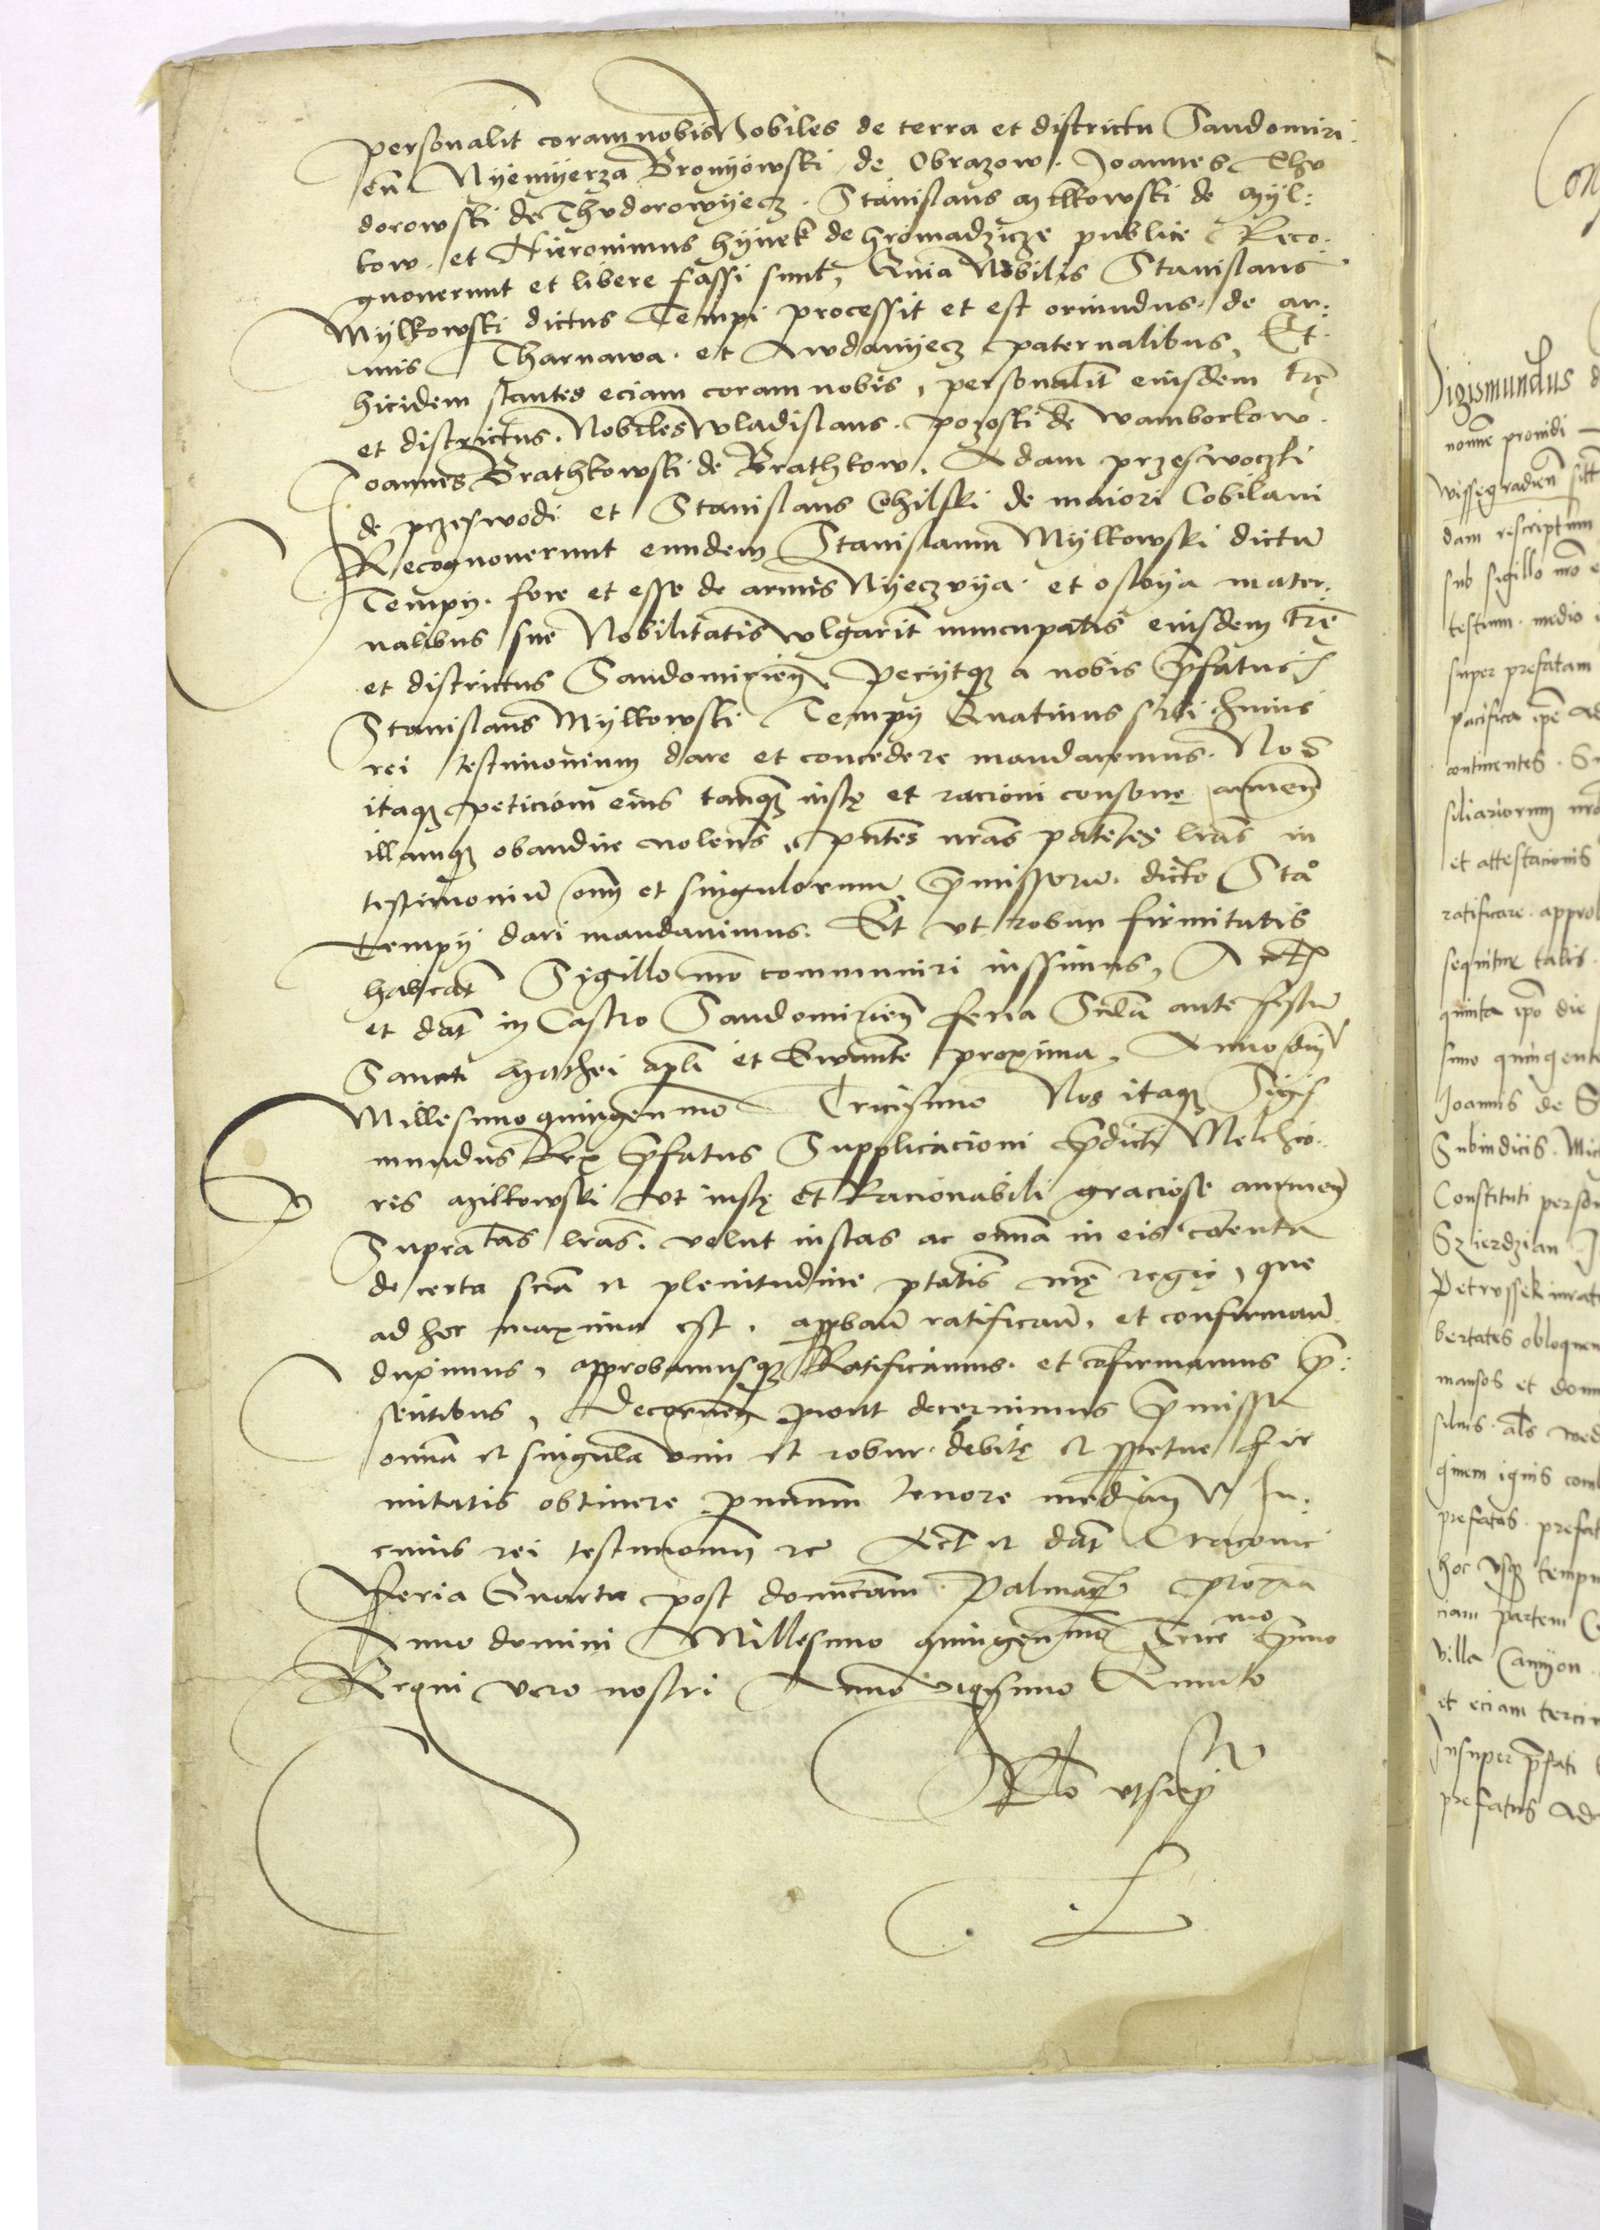 personalit coram nobis Nobiles de terra et districtu Sandomiri
en Nyemyerza Bronyowski de Obrazow. Joannes Thv
dorowski de Thvdorowyecz. Stanislaus Milkowski de Myl:
kow. et Hieronimus hynek de hromadzicze publice Reco.
gnoverunt et libere fassi sunt, Quia Nobilis Stanislaus
Mylkowski dictus Tempi processit et est oriundus de ar:
mis Tharnawa. et Awdanyecz paternalibus, Et
hicidem stantes eciam coram nobis, personalit eiusdem tre
et districtus. Nobiles Wladislaus. pozoski de Wamborkow.
Joannes Brathkowski de Brathkow, Adam przeswoczki
de przeswodi et Stanislaus Chilski de maiori Cobilani
Recognoverunt eundem Stanislaum Mylkowski dictu
Tempy. fore et esse de armis Nyeczvya. et ostoya mater.
nalibus sue Nobilitatis wlgarit nuncupatis eiusdem tre
et districtus Sandomirien, Peciitqz a nobis pfatus
Stanislaus Mylkowski Tempy Quatinus sibi huius
rei testimonium dare et concedere mandaremus. Nos
itaqz peticioni eius tanqz iuste et racioni consone annuen
illamqz obaudire nolens, pntes nras patentes lras in
testimoniu oim et singulorum pmissoru. dicto Sta
Tempy dari mandavimus. Et vt robur firmitatis
habeat Sigillo nro communiri iussimus, Act
et dat in Castro Sandomirien feria Scda ante festu
Sancti Mathei apli et Ewante proxima, Anno dni
Millesimo quingenmo Tricesimo Nos itaqz Sigis
mundus Rex pfatus Supplicacioni pdicti Melchio.
ris Milkowski vt iuste et Racionabili graciose annuen
Supratas lras. velut iustas ac omia in eis contenta
de certa scia et plenitudine ptatis nre regie, que
ad hoc maxima est. appbau ratificau, et confirmau
duximus, approbamusqz Ratificamus. et confirmamus p:
sentibus, Decernen prout decernimus pmissa
omia et singula vim et robur debite et ppetue fir
mitatis obtinere pntium tenore median In.
cuius rei testimonium rc Act et dat Cracovie
Feria Quarta post dominicam Palmar proxia
Anno domini Millesimo quingenmo Tricemo primo
Regni vero nostri Anno vigesimo Quinto
Rlo vtsup
Sigismundus
nomine providi
Wissegradien
dam rescriptum
sub sigillo nro
testium. medio
super prefatam
pacifica ipe
continentes.
siliariorum nro
et attestacionis
ratificare. appro
sequitur talis.
quinta ipo die
simo quingente
Joannis de S
Subiudicis. Mic
Constituti person
Szierdzian
Petrvssek
bertates obloquen
mansos et
silvis. als
quem ignis com
prefatas. prefat
hoc vsqz tempu
ciam partem
villa
et eciam terci
Insuper pfati
prefatus Ad